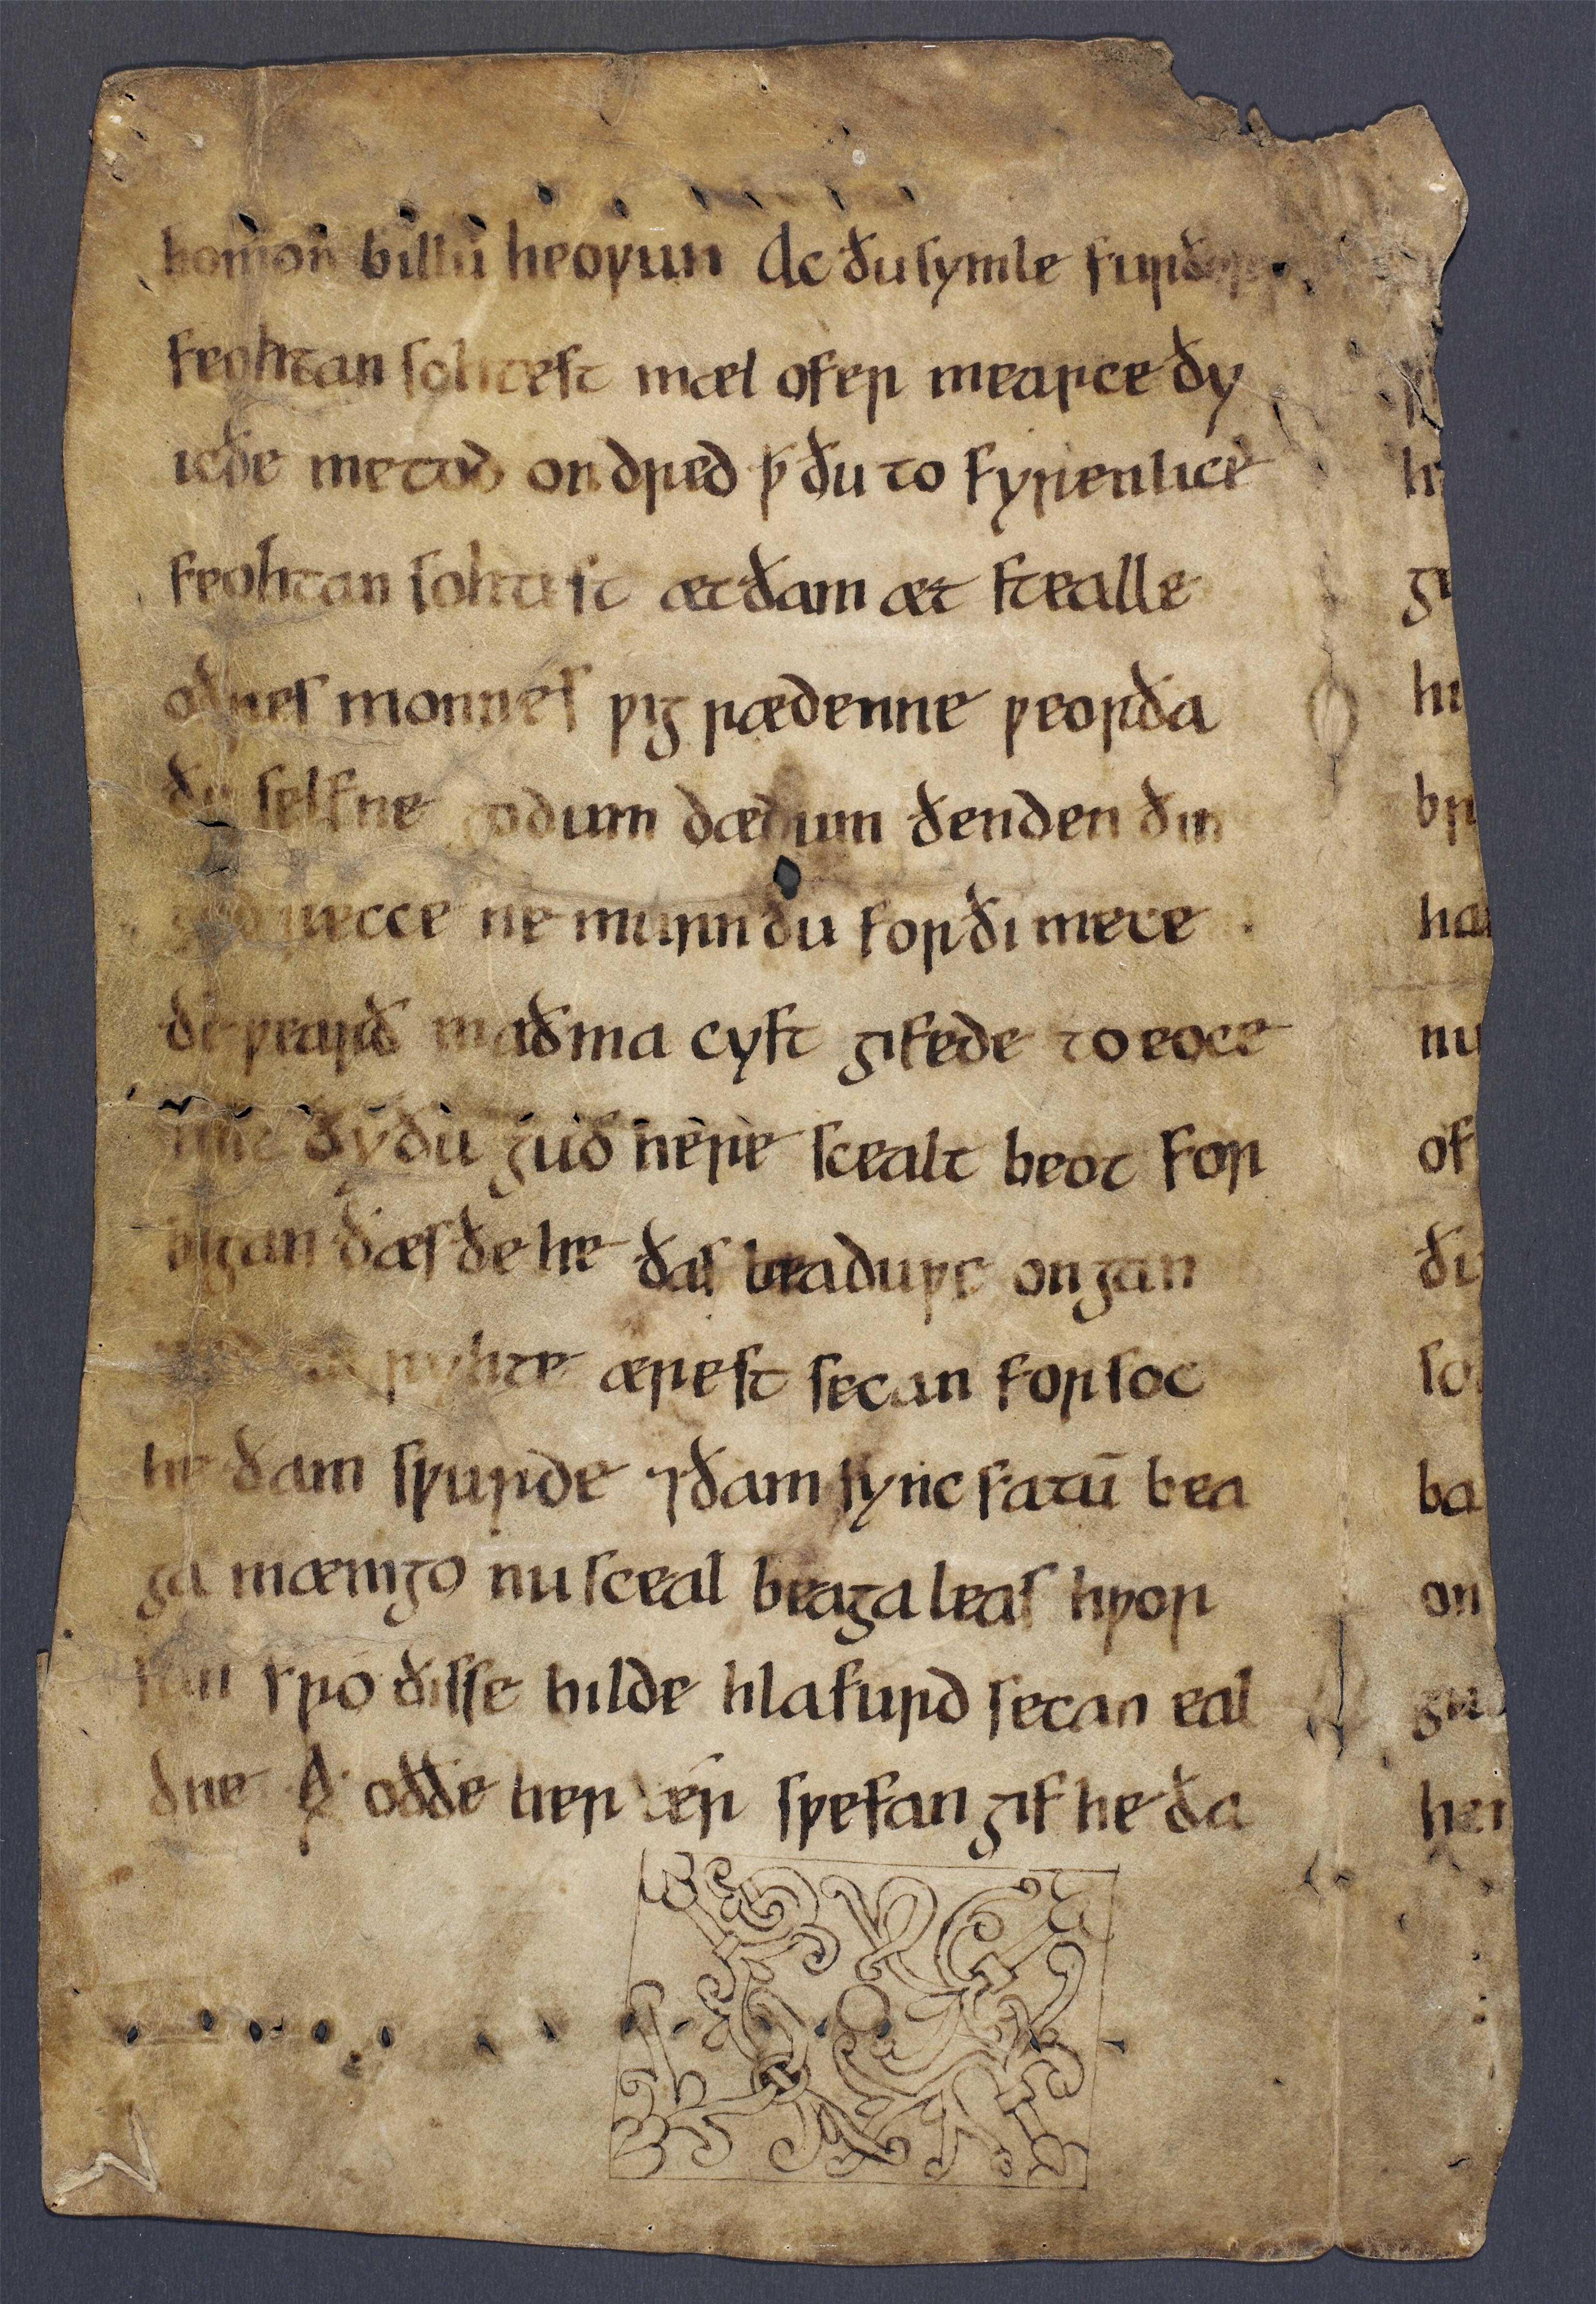 homon billū heoƿun Ac ðu symle furðor
feohtan sohtest mæl ofer mearce ðy
ic ðe metod on dred ꝥ ðu to fyrenlice
feohtan sohtest æt ðam æt stealle
oðres monnes ƿig rædenne ƿeorða
ðe selfne godum dædum ðenden ðin
god recce ne murn ðu for ði mece
ðe ƿearð maðma cyst gifede to eoce
unc ðy ðu guð here scealt beot for
bigan ðæs ðe he ðas beaduƿe ongan
ryhte ærest secan forsoc
he ðam sƿurde ⁊ ðam sync fatū bea
ga mænigo nu sceal beaga leas hƿor
fan frō ðisse hilde hlafurd secan eal
dne ᛟ oððe her ær sƿefan gif he ða
h
g
hi
br
ha
nu
of
ðu
so
ba
on
gu
her